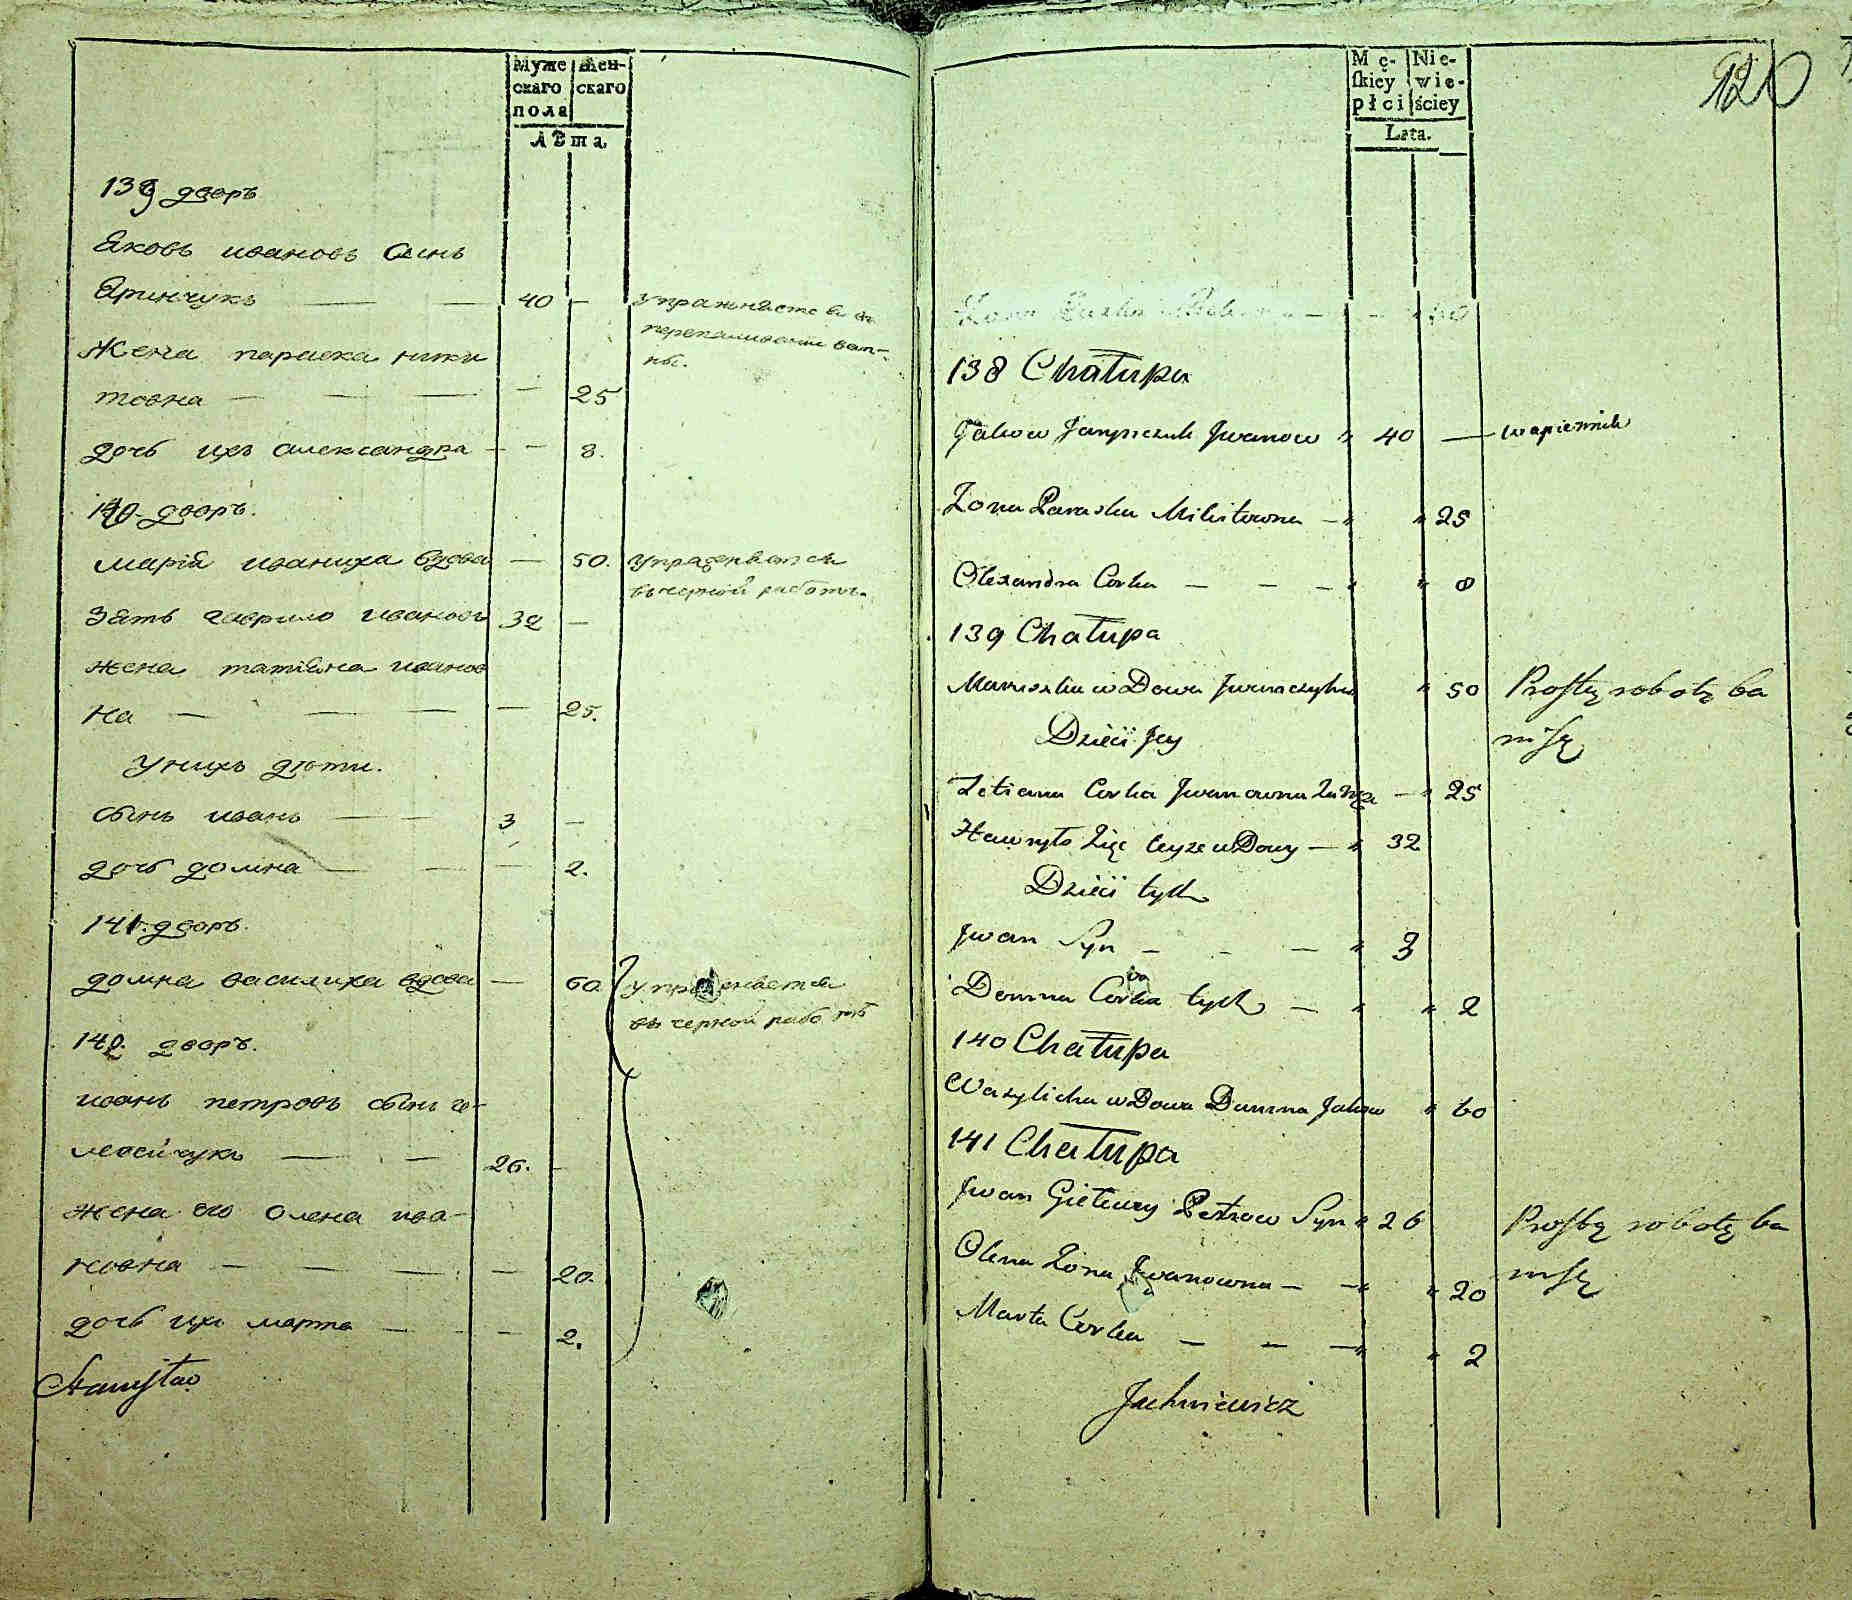 Муже Жен-
скаго скаго
пола
Лѣта.
139 дворъ
Яковъ ивановъ сынъ
Яринчукъ — — 40 — упражняется въ
перепаливании вап-
ны.
Жена параска ники
товна — — — — 25
дочь ихъ александра — — 8.
140 дворъ.
марія иваниха вдова — 50. упражняется
въ черной работе.
Зять гаврило ивановъ 32 —
жена татіяна иванов
на — — — — 25.
у нихъ дѣти.
сынъ иванъ — — 3 —
дочь домна — — — 2.
141 дворъ.
домна василиха вдова — 60 упражняется
въ черной работѣ
142. дворъ.
иванъ петровъ сынъ ге-
левейчукъ — — 26. —
жена его олена ива-
новна — — — — — 20.
дочь ихъ марта — — — 2.
Stanisław
Mę- Nie-
skiey wie-
płci ściey
Lata.
120
Żona
138 Chałupa
Jakow Jarynczuk Jwanow " 40 — wapiennik
Żona Paraska Mikitowna — " " 25
Olexandra Corka — — — " " 8
139 Chałupa
Maryska wDowa Jwanczycha " 50 Prostą robotą ba
wi się
Dzieci Jey
Tetiana Corka Jwanowna — " 25
Hawryło Zięć teyze wDowy — " 32
Dzieci tych
Jwan Syn — - — " 3
Domna Corka tych — " " 2
140 Chałupa
Wasylicha wDowa Dumna " 60
141 Chałupa
Jwan Petrow Syn " 26 Prostą robotą ba
wi się
Olena Żona Jwanowna — — " " 20
Marta Corka — — — " " 2
Jachniewicz